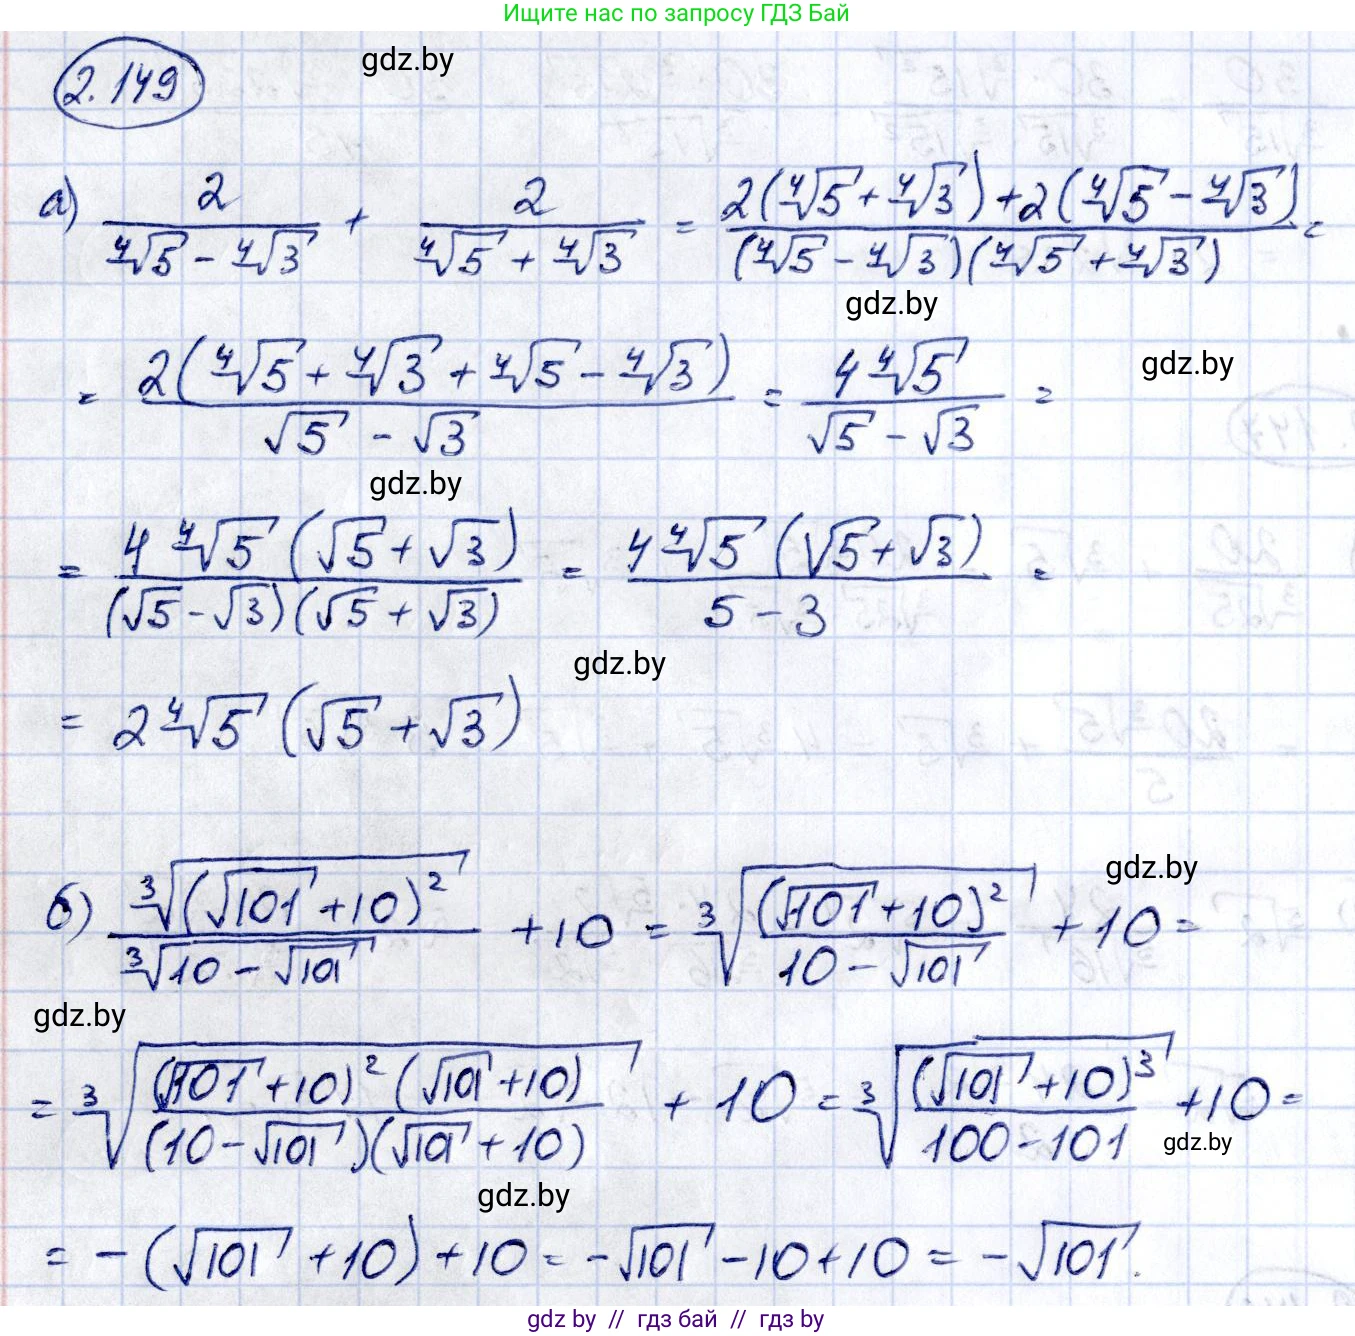 Ищите нас по запросу ГДЗ Бай
2.149
gdz.by
а) 2/(⁴√5 - ⁴√3) + 2/(⁴√5 + ⁴√3) = (2(⁴√5 + ⁴√3) + 2(⁴√5 - ⁴√3))/((⁴√5 - ⁴√3)(⁴√5 + ⁴√3)) =
gdz.by
= 2(⁴√5 + ⁴√3 + ⁴√5 - ⁴√3)/(√5 - √3) = 4⁴√5/(√5 - √3) =
gdz.by
gdz.by
= 4⁴√5(√5 + √3)/((√5 - √3)(√5 + √3)) = 4⁴√5(√5 + √3)/(5 - 3) =
gdz.by
= 2⁴√5(√5 + √3)
gdz.by
б) ³√((√101 + 10)²)/³√(10 - √101) + 10 = ³√((√101 + 10)²/(10 - √101)) + 10 =
gdz.by
= ³√((√101 + 10)²(√101 + 10)/((10 - √101)(√101 + 10))) + 10 = ³√((√101 + 10)³/(100 - 101)) + 10 =
gdz.by
gdz.by
= -(√101 + 10) + 10 = -√101 - 10 + 10 = -√101.
gdz.by // гдз бай // гдз by